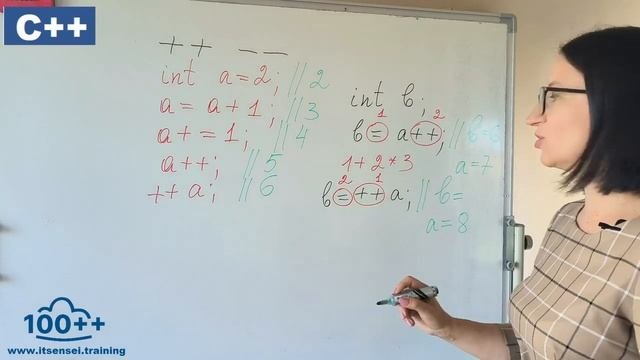 C++
++ --
int a=2; //2
a = a+1; //3
a+=1; //4
a++; //5
++a; //6
int b;
1 2
b = a++; //b=6
a=7
1+2*3
2 1
b=++a; //b=
a=8
100++
www.itsensei.training